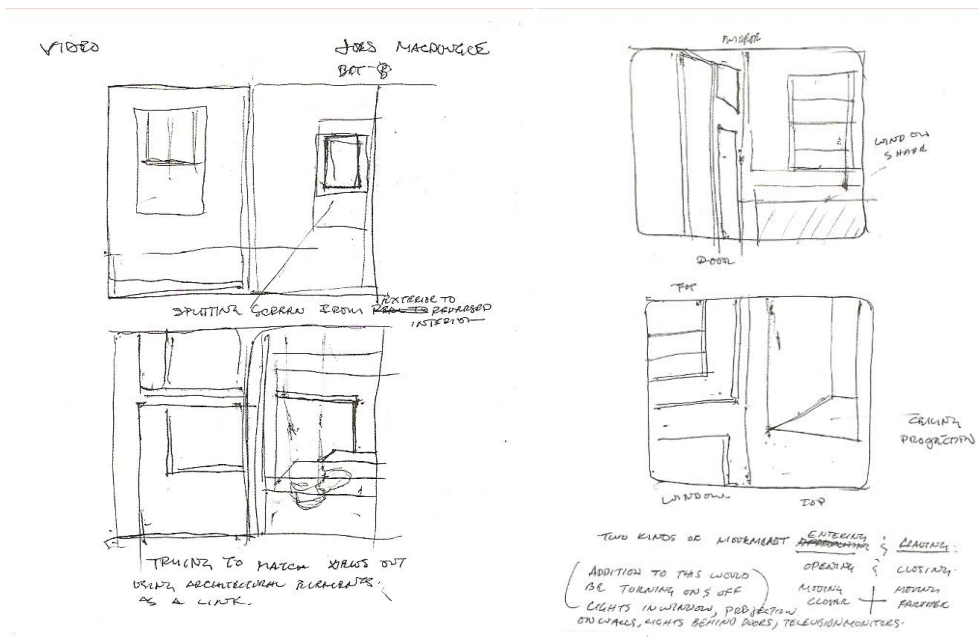 VIDEO
MACDOUGLE
SPLITTING SCREEN FROM EXTERIOR TO
REVERSED
INTERIOR
TRYING TO MATCH VIEWS OUT
USING ARCHITECTURAL ELEMENTS.
AS A LINK.
MIRROR
WINDOW
SHADE
DOOR
TOP
CEILING
PROJECTION
WINDOW
TOP
TWO KINDS OF MOVEMENT ENTERING & LEAVING:
OPENING & CLOSING.
MOVING MOVING
CLOSER FARTHER
ADDITION TO THIS WOULD
BE TURNING ON & OFF
LIGHTS IN WINDOW, PROJECTION
ON WALLS, LIGHTS BEHIND DOORS, TELEVISION MONITORS.